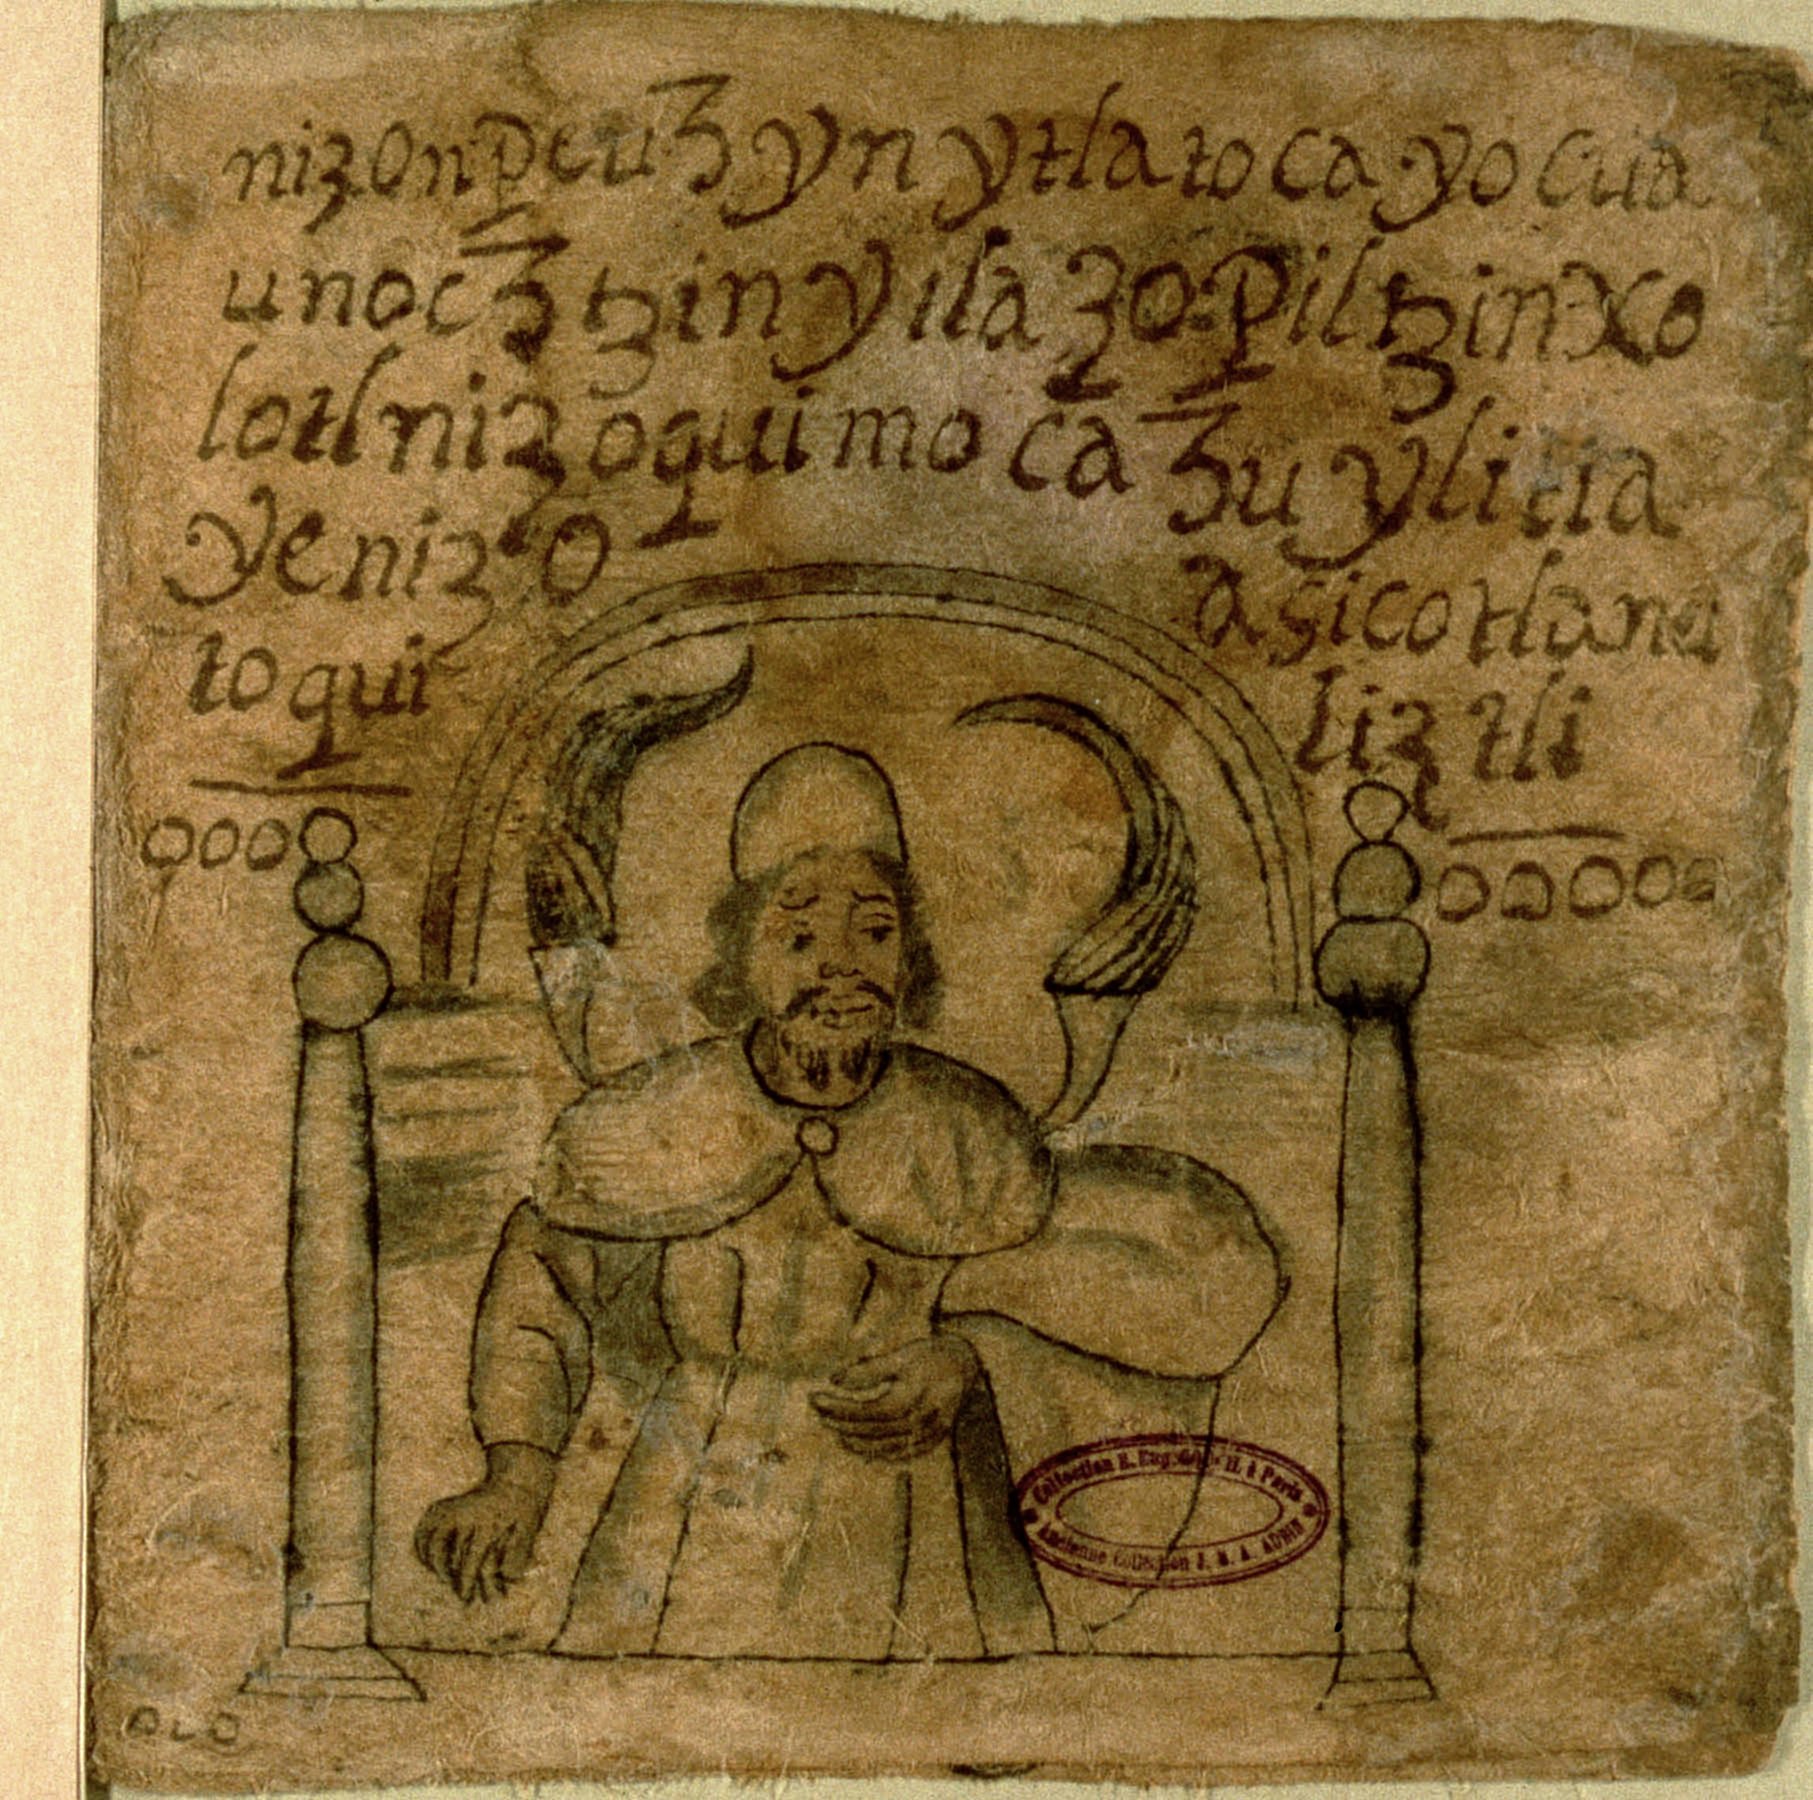 nizonpeuhyn ytlatocayocua
unoctzin yilazo piltzin xo
lotl nizoquimocahu ylitia
yenizo açicotlane
toqui liztli
000 00000
Collection E. Eug. Goupil à Paris
Ancienne Collection J. M. A. AUBIN